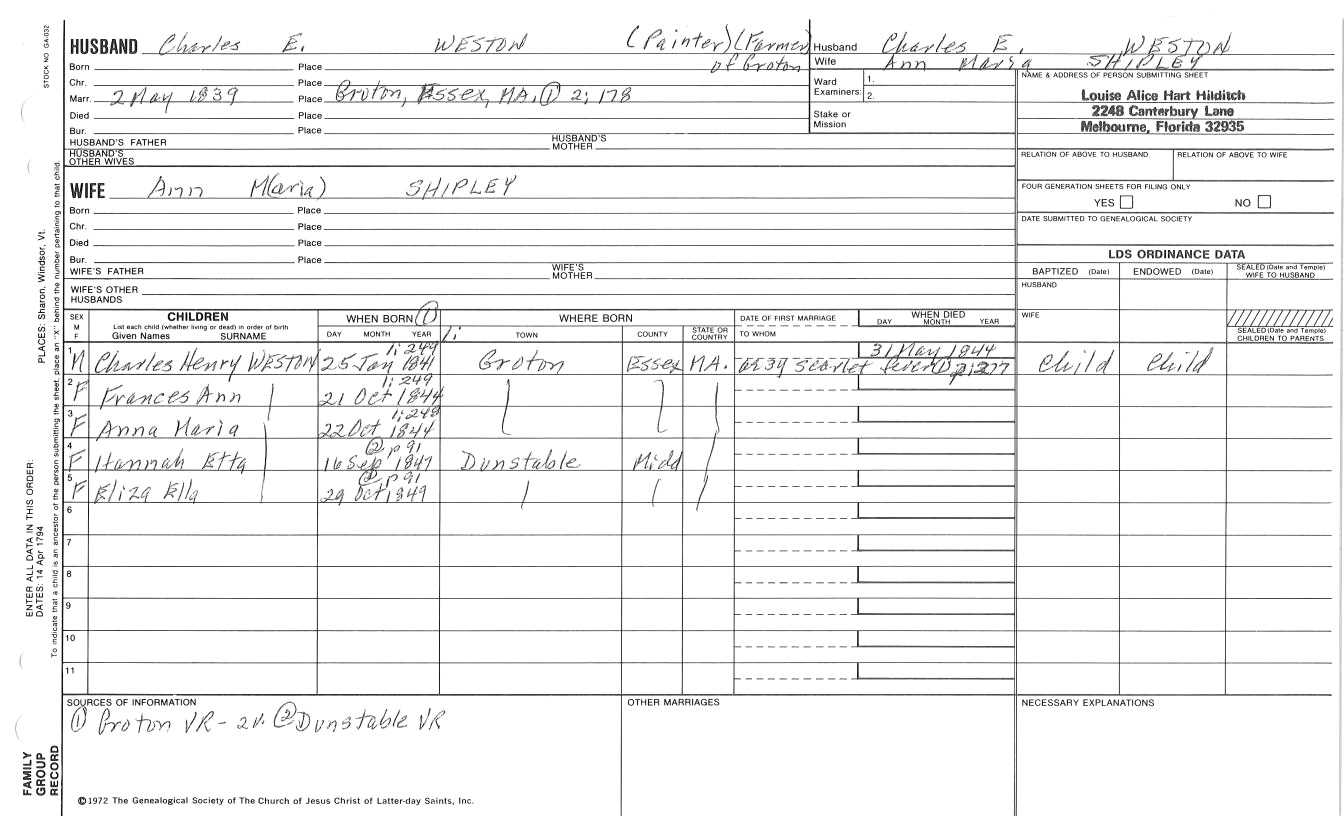 STOCK NO GA-032
HUSBAND Charles E. WESTON (Painter) (Farmer)
of Groton
Born Place
Chr. Place
Marr. 2 May 1839 Place Groton, Essex, MA. ① 2; 178
Died Place
Bur. Place
HUSBAND'S FATHER HUSBAND'S MOTHER
HUSBAND'S OTHER WIVES
WIFE Ann M(aria) SHIPLEY
Born Place
Chr. Place
Died Place
Bur. Place
WIFE'S FATHER WIFE'S MOTHER
WIFE'S OTHER HUSBANDS
Husband Charles E. WESTON
Wife Ann Maria SHIPLEY
Ward Examiners: 1.
2.
Stake or Mission
NAME & ADDRESS OF PERSON SUBMITTING SHEET
Louise Alice Hart Hilditch
2248 Canterbury Lane
Melbourne, Florida 32935
RELATION OF ABOVE TO HUSBAND RELATION OF ABOVE TO WIFE
FOUR GENERATION SHEETS FOR FILING ONLY
YES NO
DATE SUBMITTED TO GENEALOGICAL SOCIETY
LDS ORDINANCE DATA
BAPTIZED (Date) ENDOWED (Date) SEALED (Date and Temple) WIFE TO HUSBAND
HUSBAND
WIFE
SEALED (Date and Temple) CHILDREN TO PARENTS
SEX M F
CHILDREN
List each child (whether living or dead) in order of birth
Given Names SURNAME
WHEN BORN ① 1;
DAY MONTH YEAR
WHERE BORN
TOWN COUNTY STATE OR COUNTRY
DATE OF FIRST MARRIAGE
TO WHOM
WHEN DIED
DAY MONTH YEAR
1 M Charles Henry WESTON 1; 249 25 Jan 1841 Groton Essex MA. 31 May 1844 scarlet fever Child Child
2 F Frances Ann 1; 249 21 Oct 1844
3 F Anna Maria 1; 248 22 Oct 1844
4 F Hannah Etta ② p 91 16 Sep 1847 Dunstable Midd
5 F Eliza Ella ② p 91 29 Oct 1849
6
7
8
9
10
11
SOURCES OF INFORMATION
① Groton VR - 2v. ② Dunstable VR
OTHER MARRIAGES
NECESSARY EXPLANATIONS
©1972 The Genealogical Society of The Church of Jesus Christ of Latter-day Saints, Inc.
PLACES: Sharon, Windsor, Vt.
ENTER ALL DATA IN THIS ORDER:
DATES: 14 Apr 1794
To indicate that a child is an ancestor of the person submitting the sheet, place an "X" behind the number pertaining to that child.
FAMILY GROUP RECORD